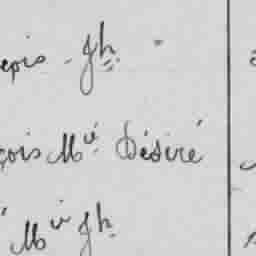 çois Jh
çois Mie Désiré
Mie Jh